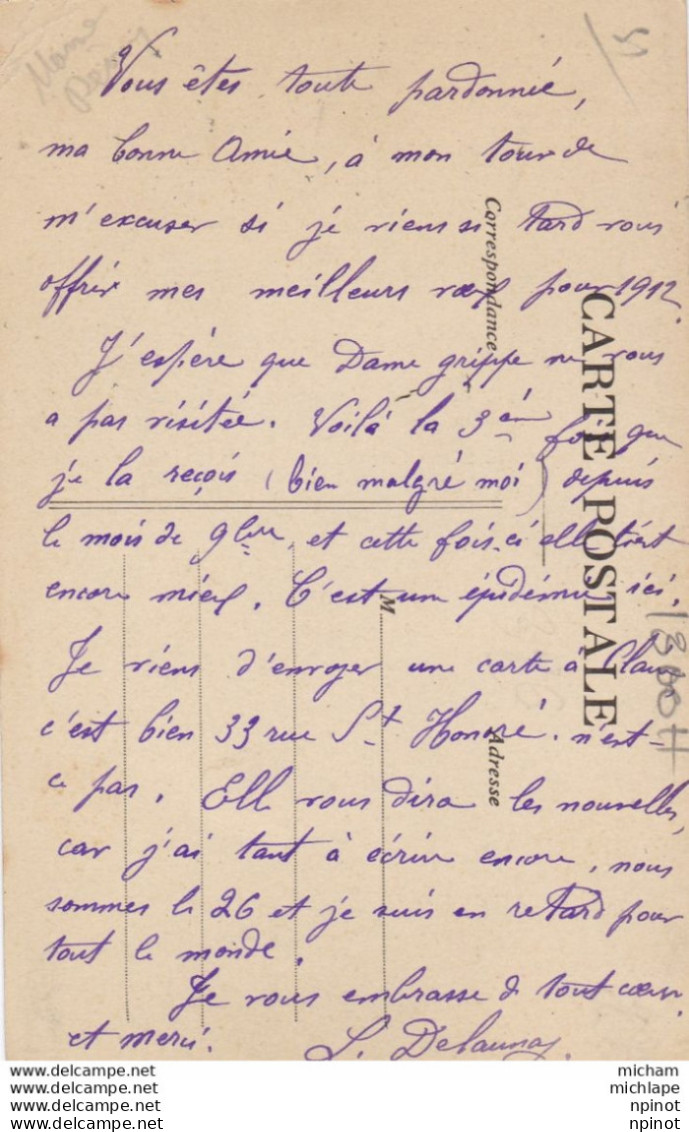 Vous êtes toute pardonnée,
ma bonne Amie, à mon tour de
m'excuser si je viens si tard vous
offrir mes meilleurs vœux pour 1912.
J'espère que Dame grippe ne vous
a pas visitée. Voilà la 3ème fois que
je la reçois (bien malgré moi) depuis
le mois de 9bre, et cette fois-ci elle tient
encore mieux. C'est une épidémie ici.
Je viens d'envoyer une carte à
c'est bien 33 rue St Honoré. n'est-
ce pas. Ell vous dira les nouvelles,
car j'ai tant à écrire encore, nous
sommes le 26 et je suis en retard pour
tout le monde.
Je vous embrasse de tout cœur.
et merci. L. Delaunay
CARTE POSTALE
Correspondance
Adresse
M
www.delcampe.net
www.delcampe.net
www.delcampe.net
www.delcampe.net
micham
michlape
npinot
npinot